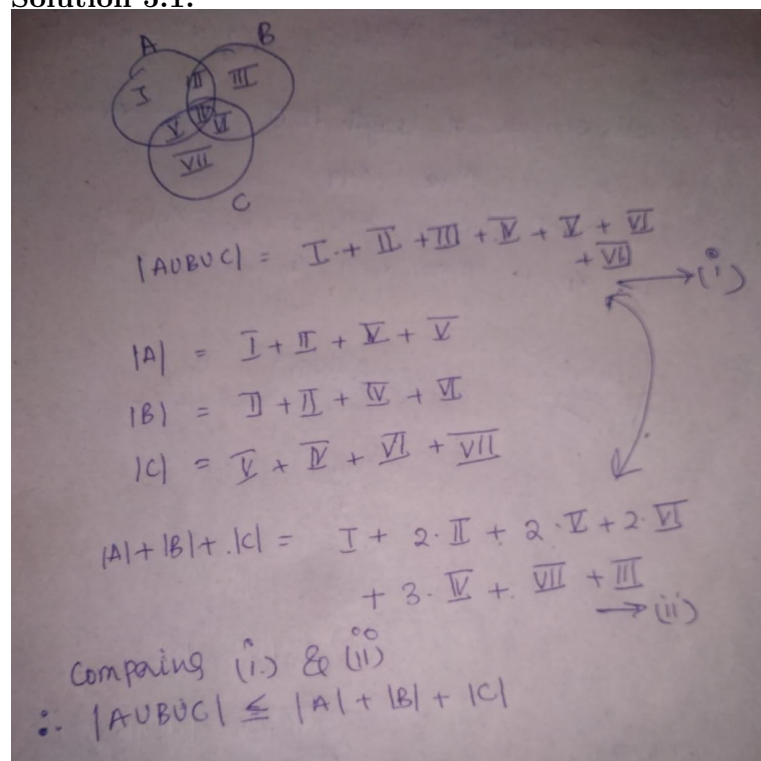 Solution 3.1.
A
B
I
II
III
IV
V
VI
VII
C
|AUBUC| = I + II + III + IV + V + VI
+ VII → (i)
|A| = I + II + IV + V
|B| = II + II + IV + VI
|C| = V + IV + VI + VII
|A| + |B| + |C| = I + 2·II + 2·V + 2·VI
+ 3·IV + VII + III
→ (ii)
Comparing (i) & (ii)
∴ |AUBUC| ≤ |A| + |B| + |C|